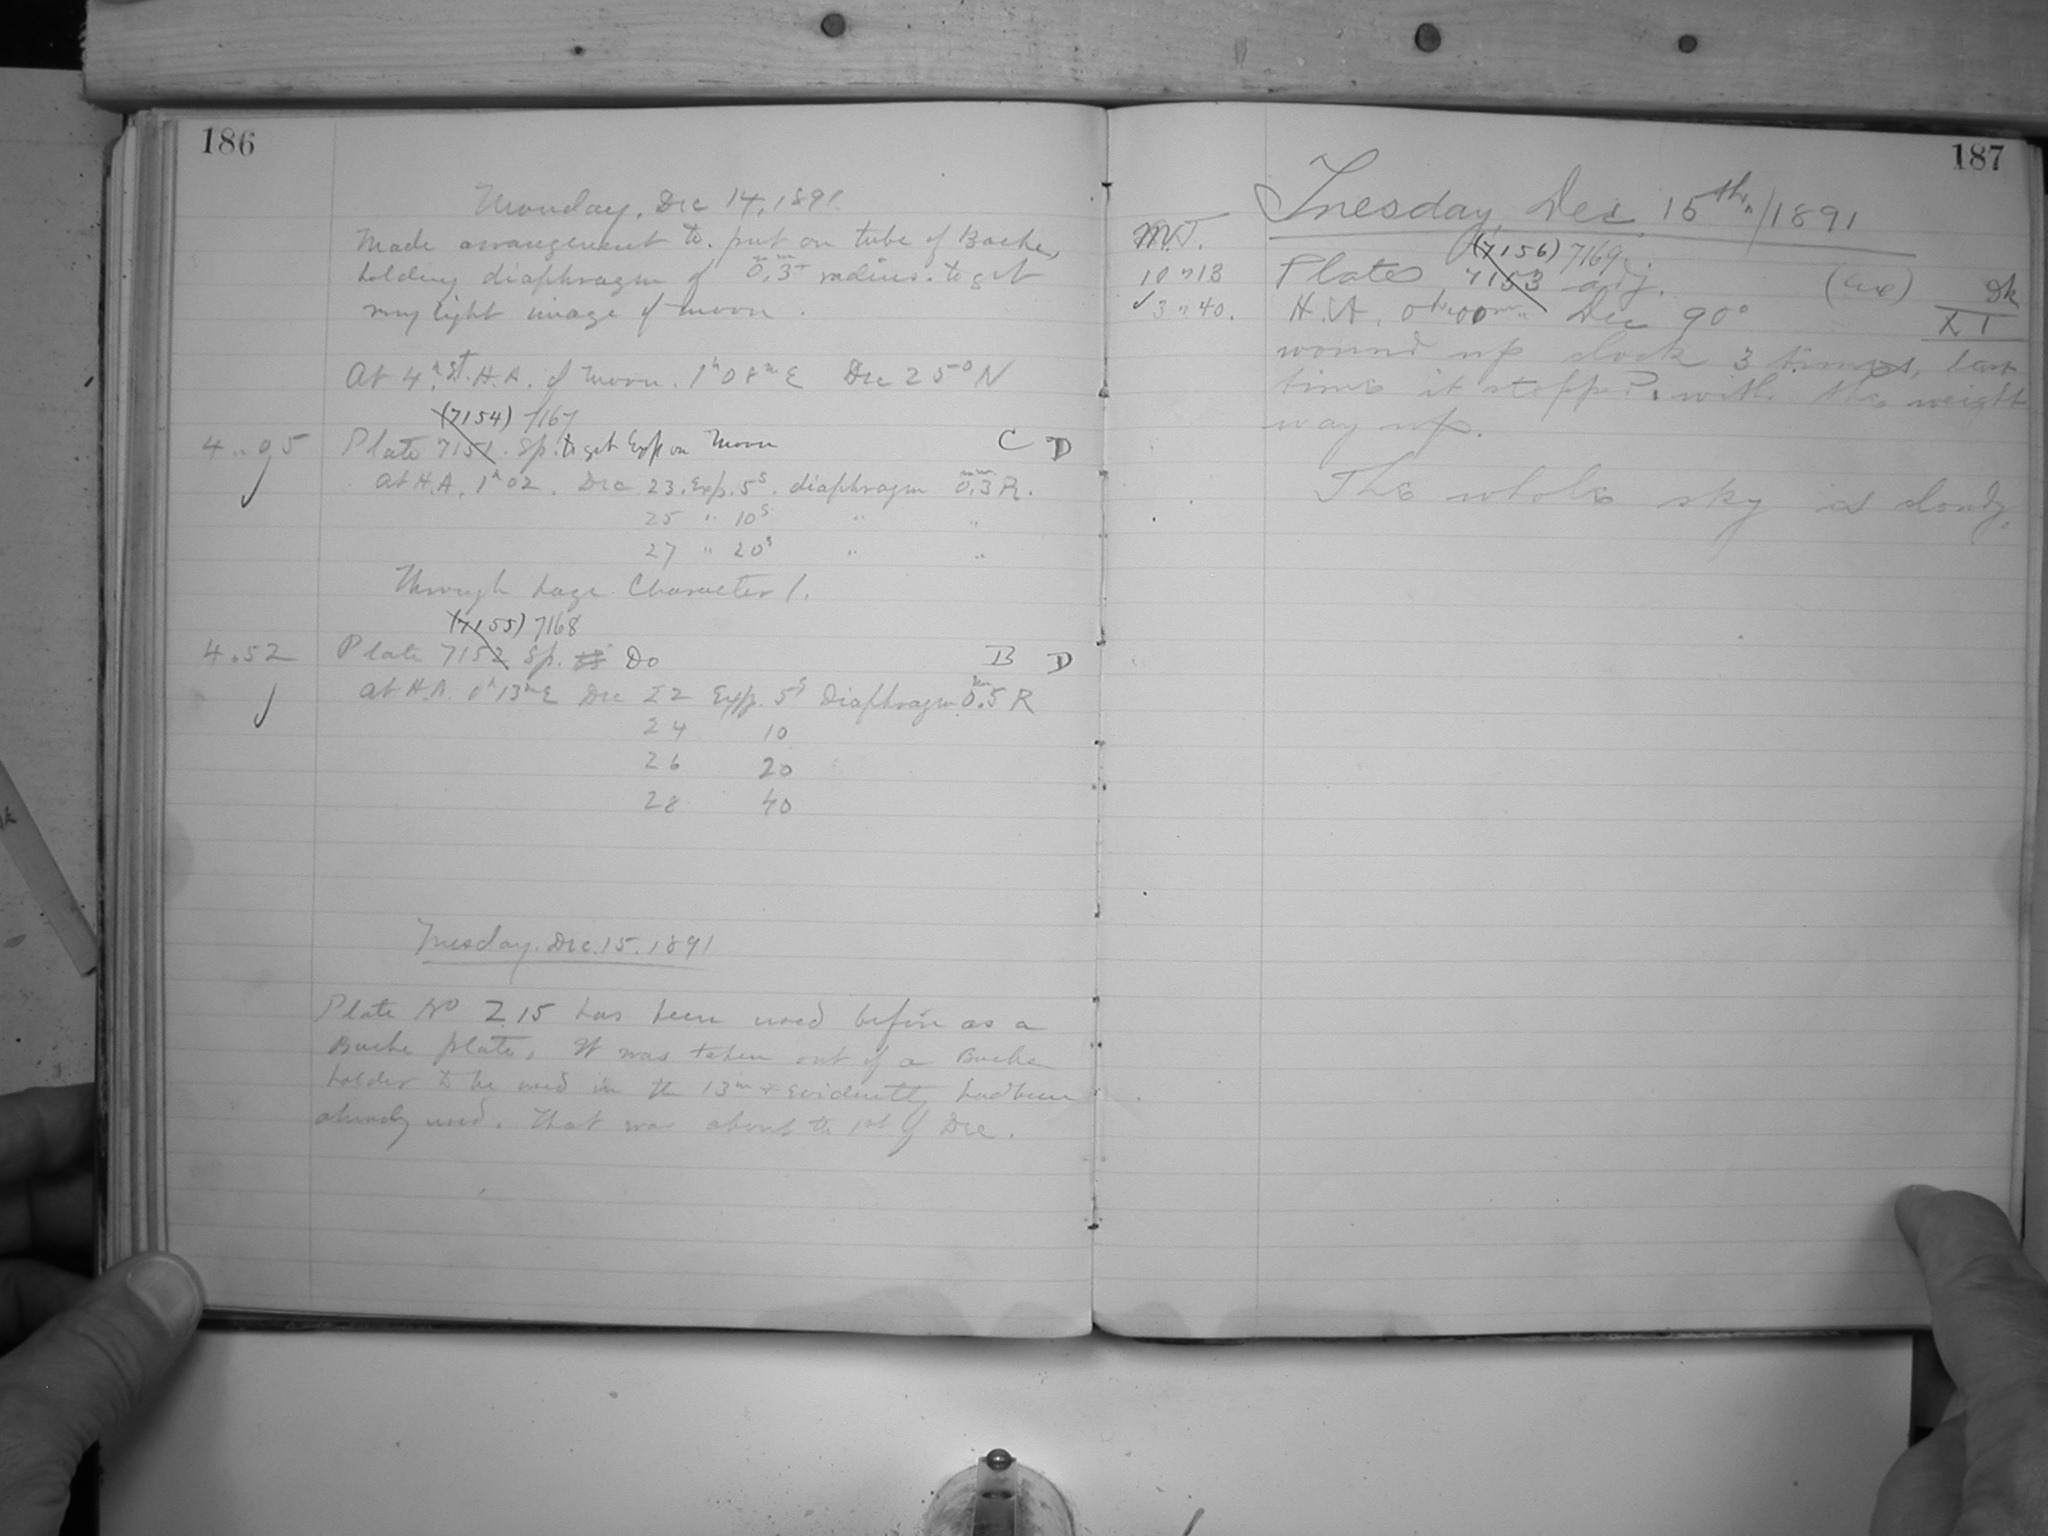 186
Monday, Dec 14, 1891
Made arrangement to put on tube of Bache,
holding diaphragm of 0.3 mm radius. to get
light image of moon.
At 4h. St. H.A. of moon. 1h08mE Dec 25° N
(7154) 7167
4..05 Plate 7151. Sp. to get Exp on Moon C D
at H.A. 1h02. Dec. 23. Exp. 5s. diaphragm 0.3 mm R.
25 " 10s " "
27 " 20s " "
Through haze. Character 1.
(7155) 7168
4.52 Plate 7152 Sp. Do B D
at H.A. 0h13mE Dec 22 Exp. 5s Diaphragm 0.5 mm R
24 10
26 20
28 40
Tuesday. Dec. 15. 1891
Plate No 215 has been used before as a
Bache plate. It was taken out of a Bache
holder to be used in the 13 in & evidently had been
already used. That was about the 1st of Dec.
187
Tuesday Dec 15th, 1891
M.T.
(7156) 7169
10 " 13 Plate 7153 adj. Dk
3 " 40. H.A. 0h 00m Dec 90° X I
wound up clock 3 times, last
time it stopped with the weight
way up.
The whole sky is cloudy.